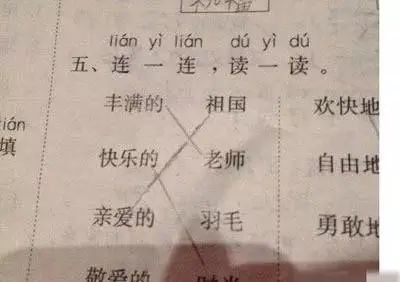 lián yì lián dú yì dú
五、连一连，读一读。
丰满的 祖国 欢快地
tián
填
快乐的 老师 自由地
亲爱的 羽毛 勇敢地
敬爱的 时光